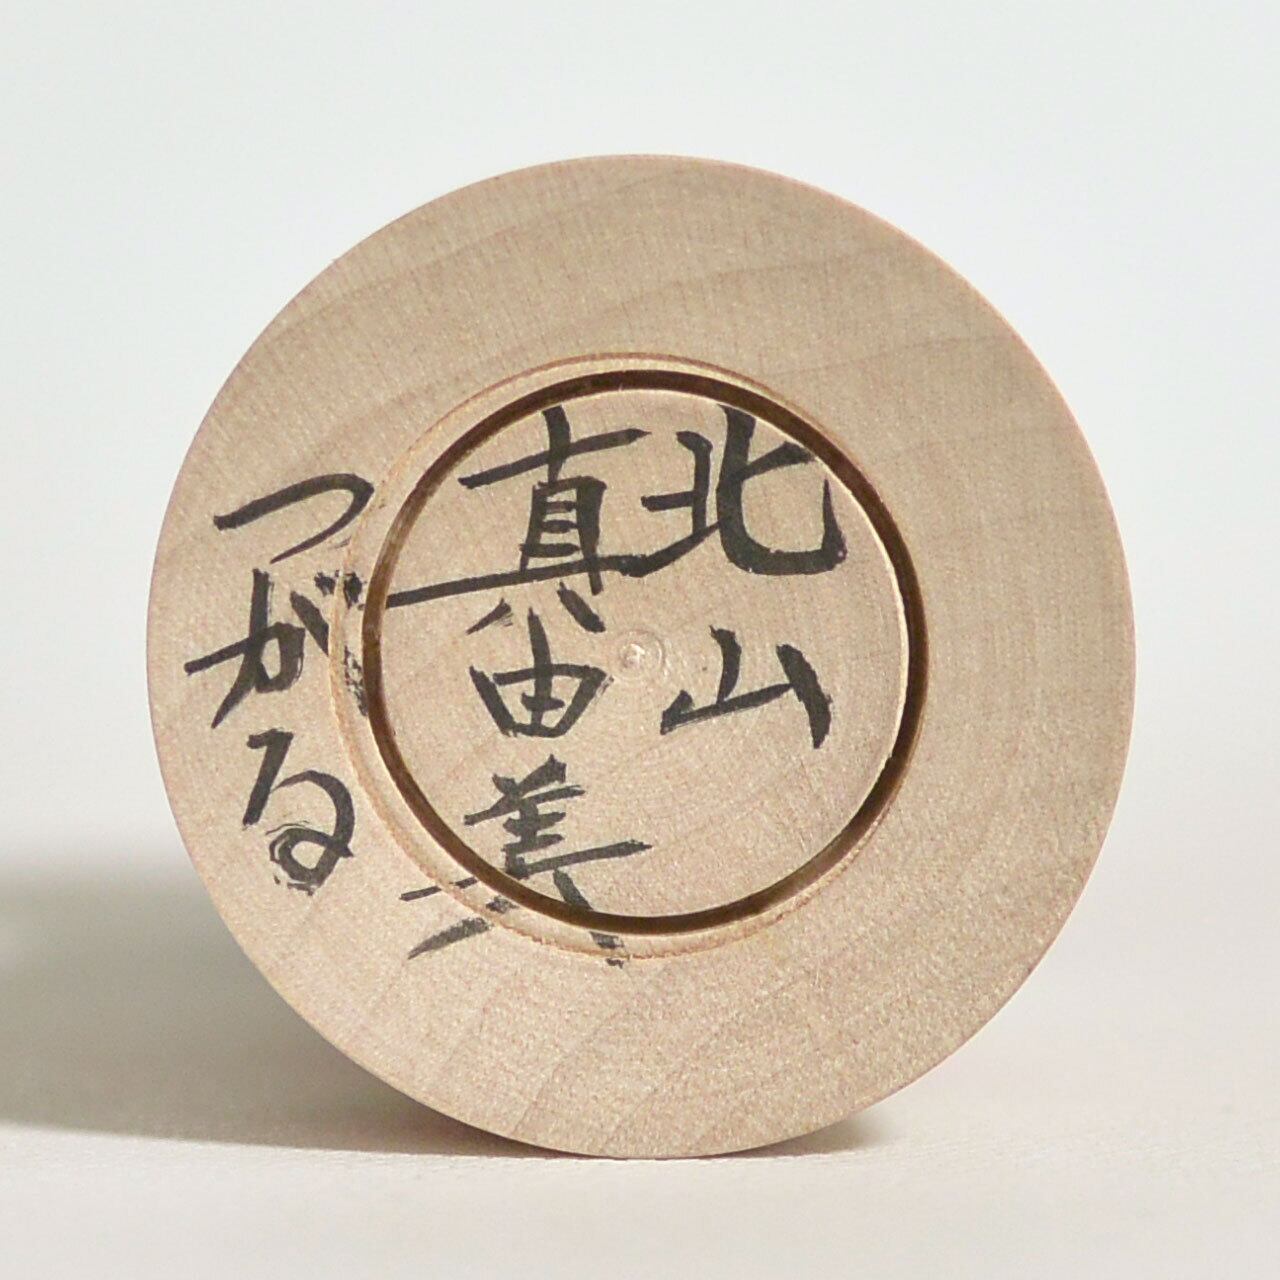 北山
真由美
つがる